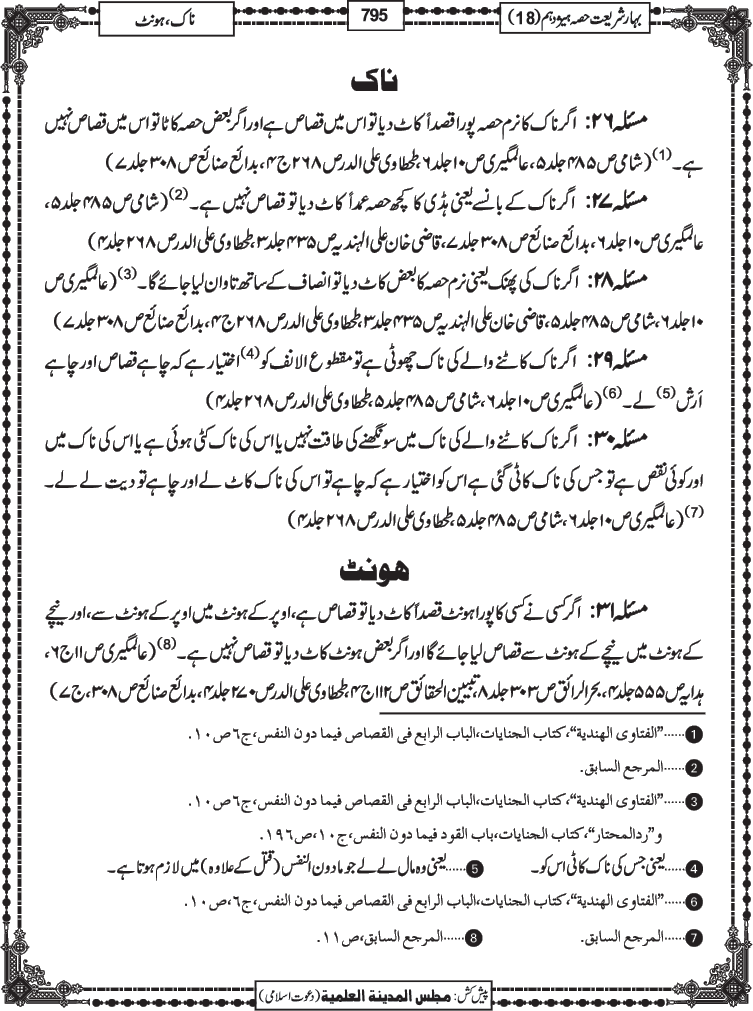 بہارشریعت حصہ ہیزدہم (18)
795
ناک، ہونٹ
ناک
مسئلہ ۲۶: اگر ناک کا نرم حصہ پورا قصداً کاٹ دیا تو اس میں قصاص ہے اور اگر بعض حصہ کاٹا تو اس میں قصاص نہیں
ہے۔(1) (شامی ص ۴۸۵ جلد ۵، عالمگیری ص ۱۰ جلد ۶، طحطاوی علی الدر ص ۲۶۸ ج ۴، بدائع صنائع ص ۳۰۸ جلد ۷)
مسئلہ ۲۷: اگر ناک کے بانسے یعنی ہڈی کا کچھ حصہ عمداً کاٹ دیا تو قصاص نہیں ہے۔(2) (شامی ص ۴۸۵ جلد ۵،
عالمگیری ص ۱۰ جلد ۶، بدائع صنائع ص ۳۰۸ جلد ۷، قاضی خان علی الہندیہ ص ۴۳۵ جلد ۳، طحطاوی علی الدر ص ۲۶۸ جلد ۴)
مسئلہ ۲۸: اگر ناک کی پھنک یعنی نرم حصہ کا بعض کاٹ دیا تو انصاف کے ساتھ تاوان لیا جائے گا۔(3) (عالمگیری ص
۱۰ جلد ۶، شامی ص ۴۸۵ جلد ۵، قاضی خان علی الہندیہ ص ۴۳۵ جلد ۳، طحطاوی علی الدر ص ۲۶۸ ج ۴، بدائع صنائع ص ۳۰۸ جلد ۷)
مسئلہ ۲۹: اگر ناک کاٹنے والے کی ناک چھوٹی ہے تو مقطوع الانف کو(4) اختیار ہے کہ چاہے قصاص اور چاہے
اَرش(5) لے۔(6) (عالمگیری ص ۱۰ جلد ۶، شامی ص ۴۸۵ جلد ۵، طحطاوی علی الدر ص ۲۶۸ جلد ۴)
مسئلہ ۳۰: اگر ناک کاٹنے والے کی ناک میں سونگھنے کی طاقت نہیں یا اس کی ناک کٹی ہوئی ہے یا اس کی ناک میں
اور کوئی نقص ہے تو جس کی ناک کاٹی گئی ہے اس کو اختیار ہے کہ چاہے تو اس کی ناک کاٹ لے اور چاہے تو دیت لے لے۔
(7) (عالمگیری ص ۱۰ جلد ۶، شامی ص ۴۸۵ جلد ۵، طحطاوی علی الدر ص ۲۶۸ جلد ۴)
ہونٹ
مسئلہ ۳۱: اگر کسی نے کسی کا پورا ہونٹ قصداً کاٹ دیا تو قصاص ہے، اوپر کے ہونٹ میں اوپر کے ہونٹ سے، اور نیچے
کے ہونٹ میں نیچے کے ہونٹ سے قصاص لیا جائے گا اور اگر بعض ہونٹ کاٹ دیا تو قصاص نہیں ہے۔(8) (عالمگیری ص ۱۱ ج ۶،
ہدایہ ص ۵۵۵ جلد ۴، بحر الرائق ص ۳۰۳ جلد ۸، تبیین الحقائق ص ۱۱۲ ج ۴، طحطاوی علی الدر ص ۲۷۰ جلد ۴، بدائع صنائع ص ۳۰۸، ج ۷)
1 ......"الفتاوى الهندية"، كتاب الجنايات، الباب الرابع في القصاص فيما دون النفس، ج٦ ص ١٠.
2 ......المرجع السابق.
3 ......"الفتاوى الهندية"، كتاب الجنايات، الباب الرابع في القصاص فيما دون النفس، ج٦ ص ١٠.
و"ردالمحتار"، كتاب الجنايات، باب القود فيما دون النفس، ج١٠، ص١٩٦.
4 ......یعنی جس کی ناک کاٹی اس کو۔ 5 ......یعنی وہ مال لے لے جو مادون النفس (قتل کے علاوہ) میں لازم ہوتا ہے۔
6 ......"الفتاوى الهندية"، كتاب الجنايات، الباب الرابع في القصاص فيما دون النفس، ج٦، ص ١٠.
7 ......المرجع السابق. 8 ......المرجع السابق، ص ١١.
پیش کش: مجلس المدینة العلمیة (دعوت اسلامی)